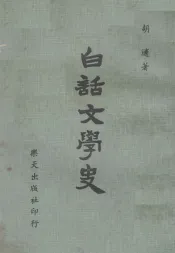 胡適著
白話文學史
樂天出版社印行